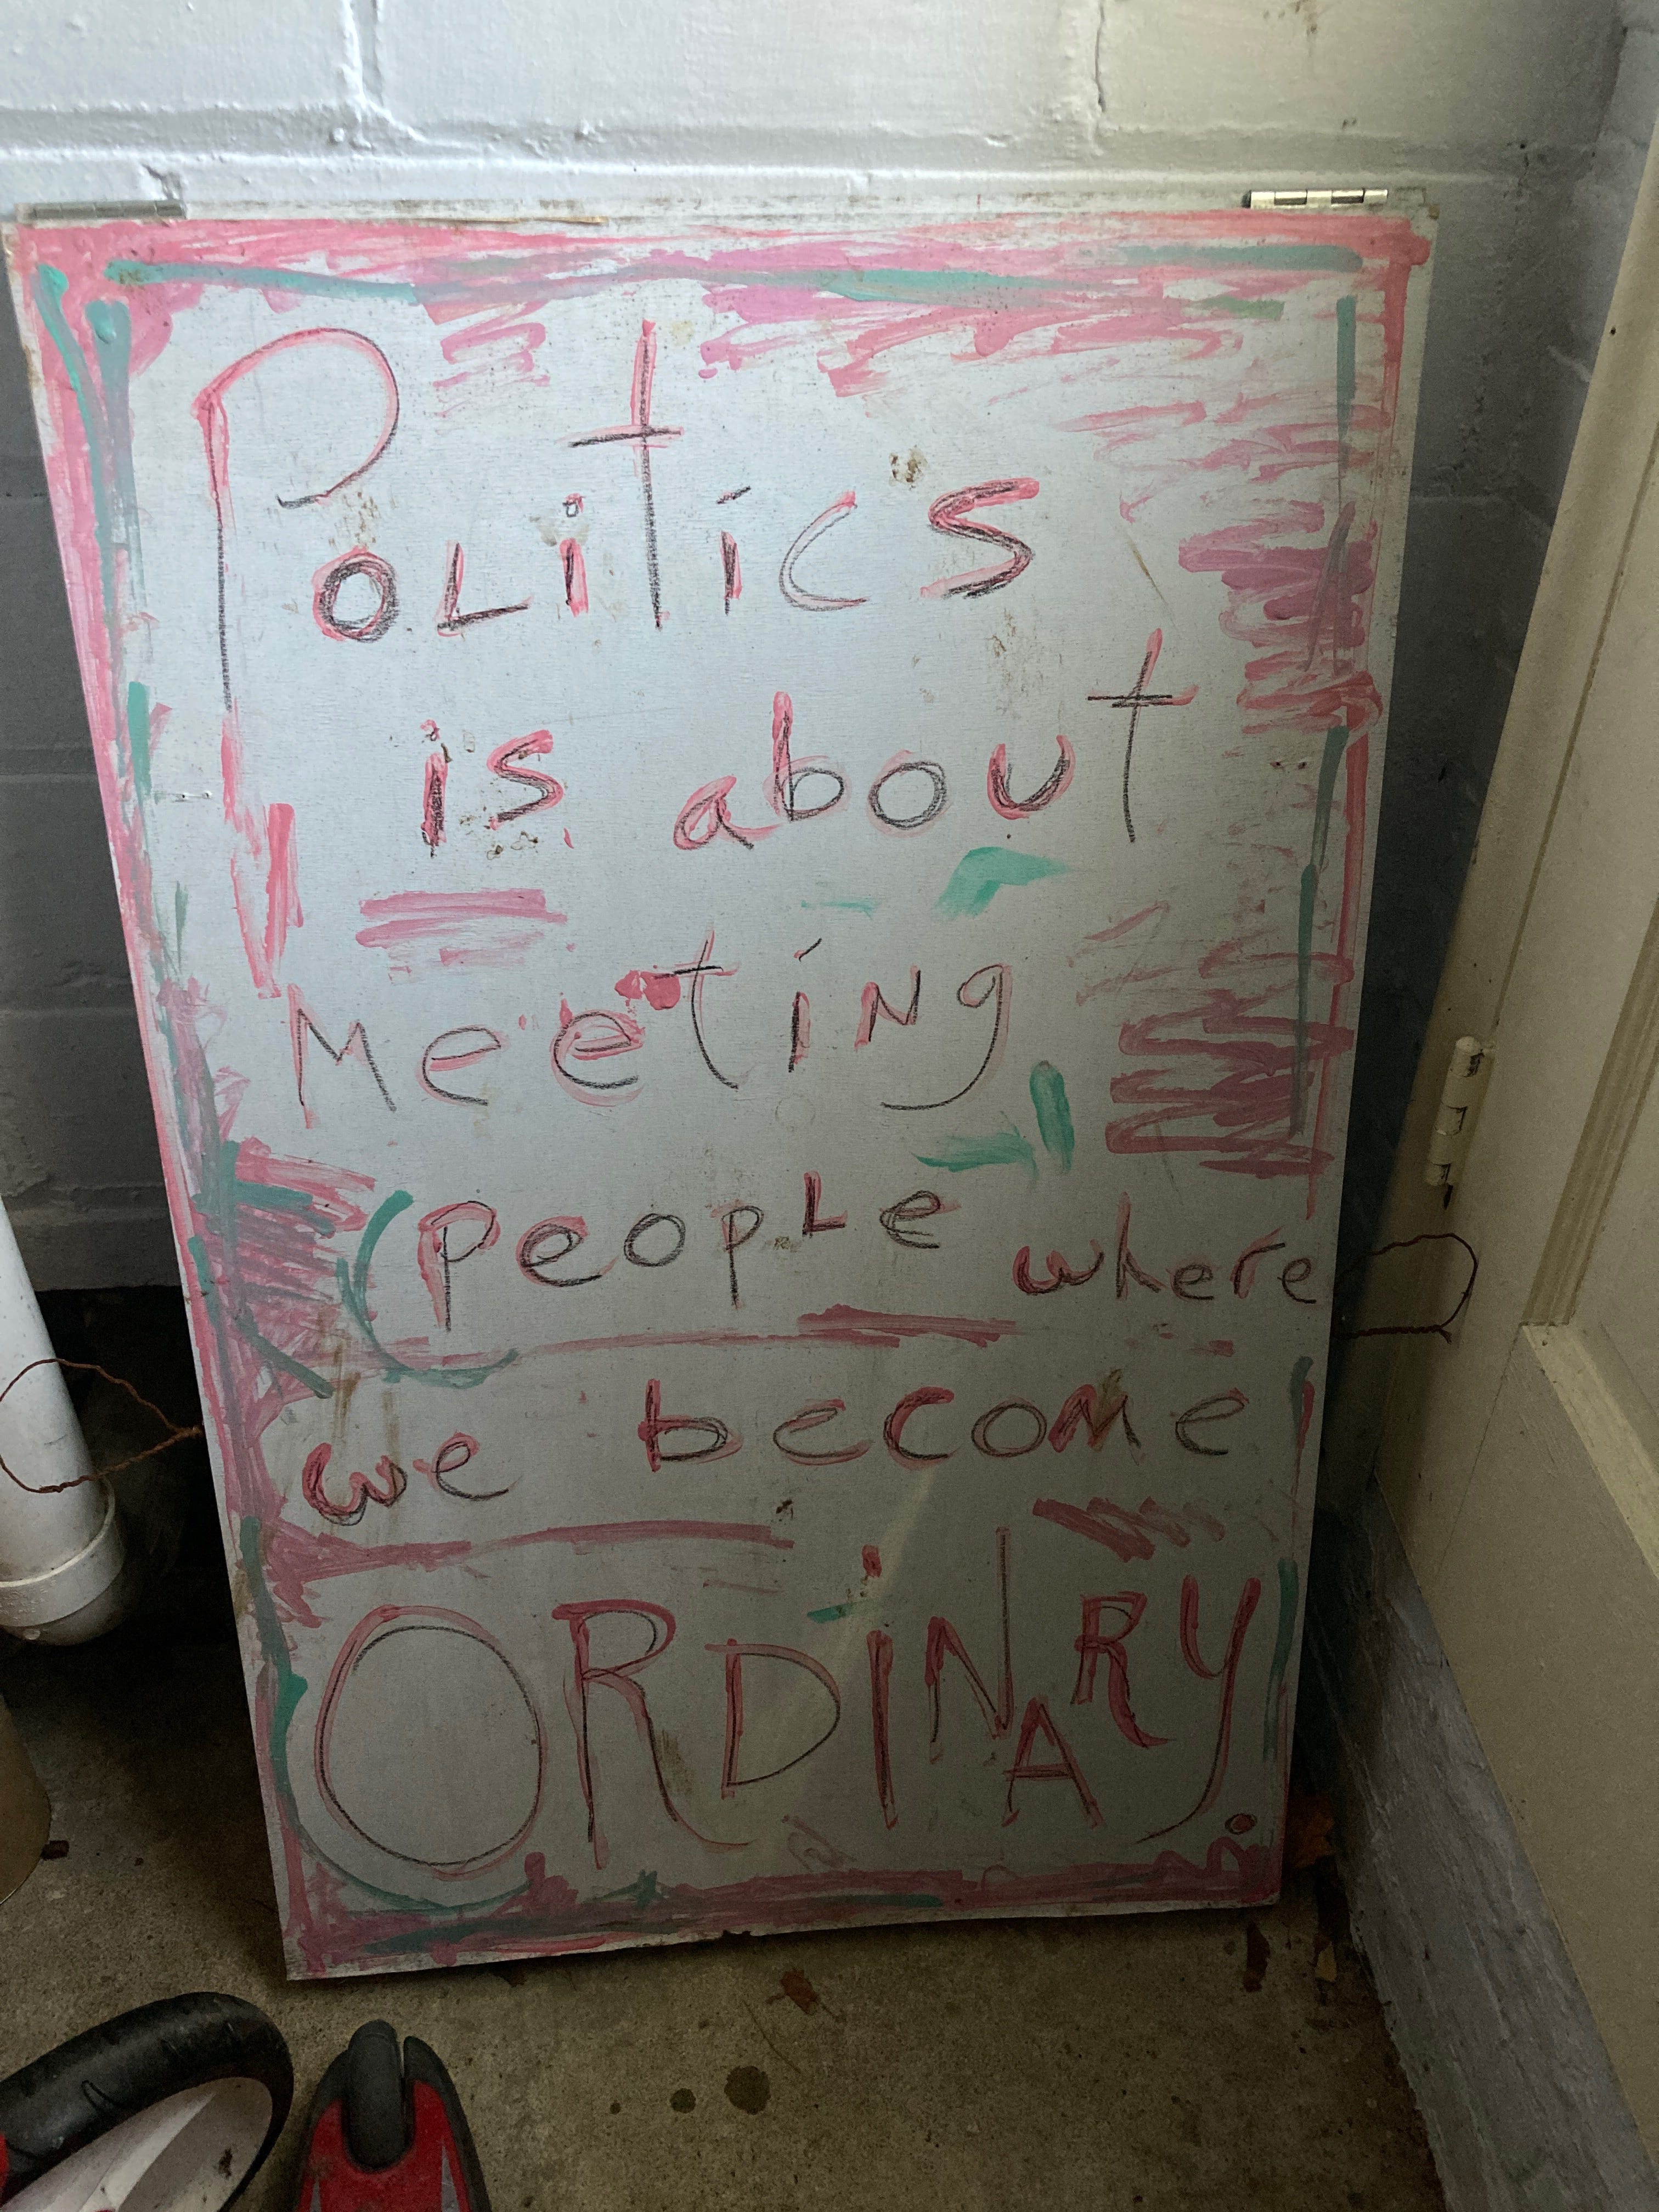 Politics
is about
Meeting
people where
we become
ORDINARY.